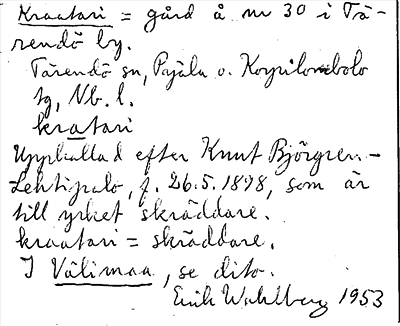 Kraatari = gård å nr 30 i Tä-
rendö by.
Tärendö sn, Pajala o. Korpilombolo
tg, Nb. l.
kratari
Uppkallad efter Knut Björgren-
Lehtipalo, f. 26.5.1898, som är
till yrket skräddare.
kraatari = skräddare.
I Välimaa, se dito.
Erik Wahlberg 1953